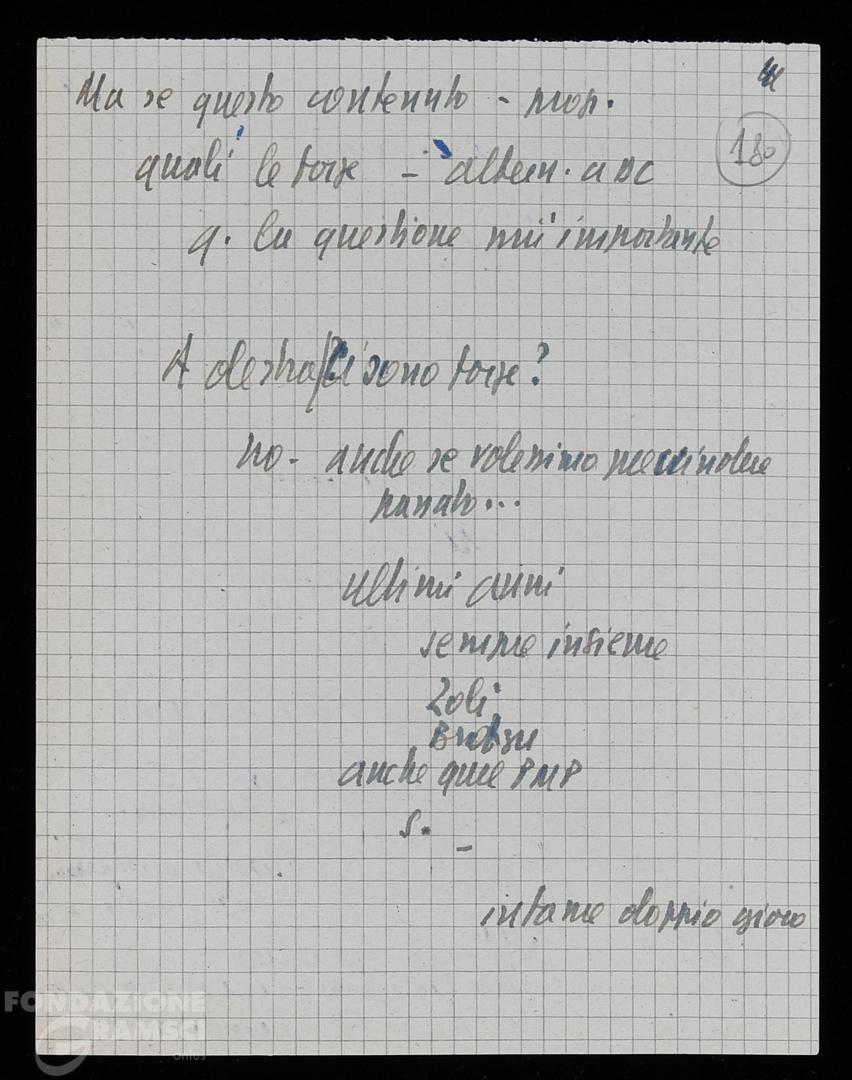 180
Ma se questo contenuto - prop.
quali le forze - altern. a DC
q. la questione più importante
A destra Ci sono forze?
no - anche se volessimo prescindere
passato...
ultimi anni
sempre insieme
Zoli
anche qui e PMP
S. -
infame doppio gioco
FONDAZIONE
GRAMSCI
onlus